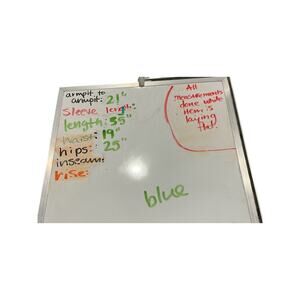 armpit to
armpit: 21"
Sleeve length:
length: 35"
waist: 19"
hips: 25"
inseam:
rise:
All
measurements
done while
item is
laying
flat.
blue